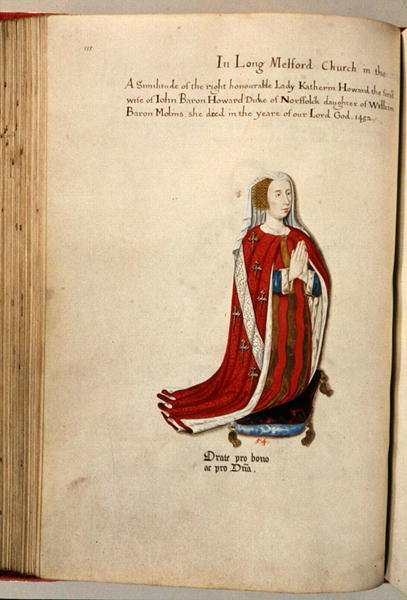 In Long Melford Church in the
A Similitude of the right honourable Lady Katherin Howard the first
wife of Iohn Baron Howard Duke of Norffolck daughter of William
Baron Molins, she died in the yeare of our Lord God. 1452.
Orate pro bono
ac pro Dña.